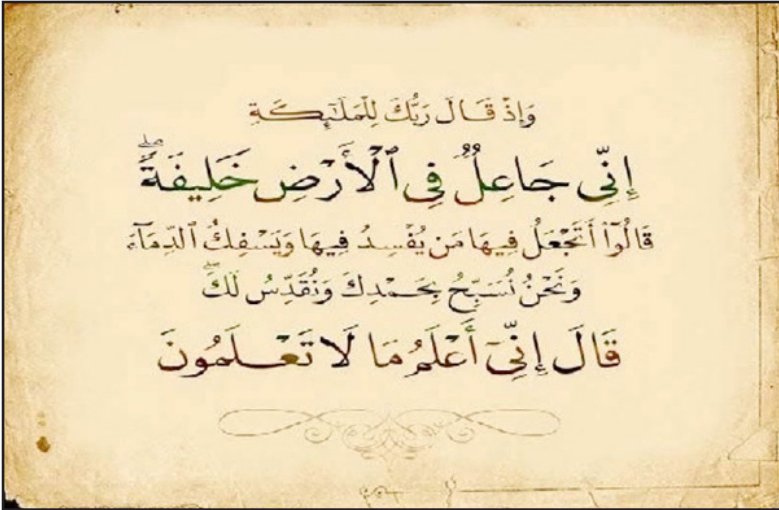 وَإِذْ قَالَ رَبُّكَ لِلْمَلَٰٓئِكَةِ
إِنِّي جَاعِلٌ فِي ٱلْأَرْضِ خَلِيفَةً ۖ
قَالُوٓا۟ أَتَجْعَلُ فِيهَا مَن يُفْسِدُ فِيهَا وَيَسْفِكُ ٱلدِّمَآءَ
وَنَحْنُ نُسَبِّحُ بِحَمْدِكَ وَنُقَدِّسُ لَكَ ۖ
قَالَ إِنِّيٓ أَعْلَمُ مَا لَا تَعْلَمُونَ